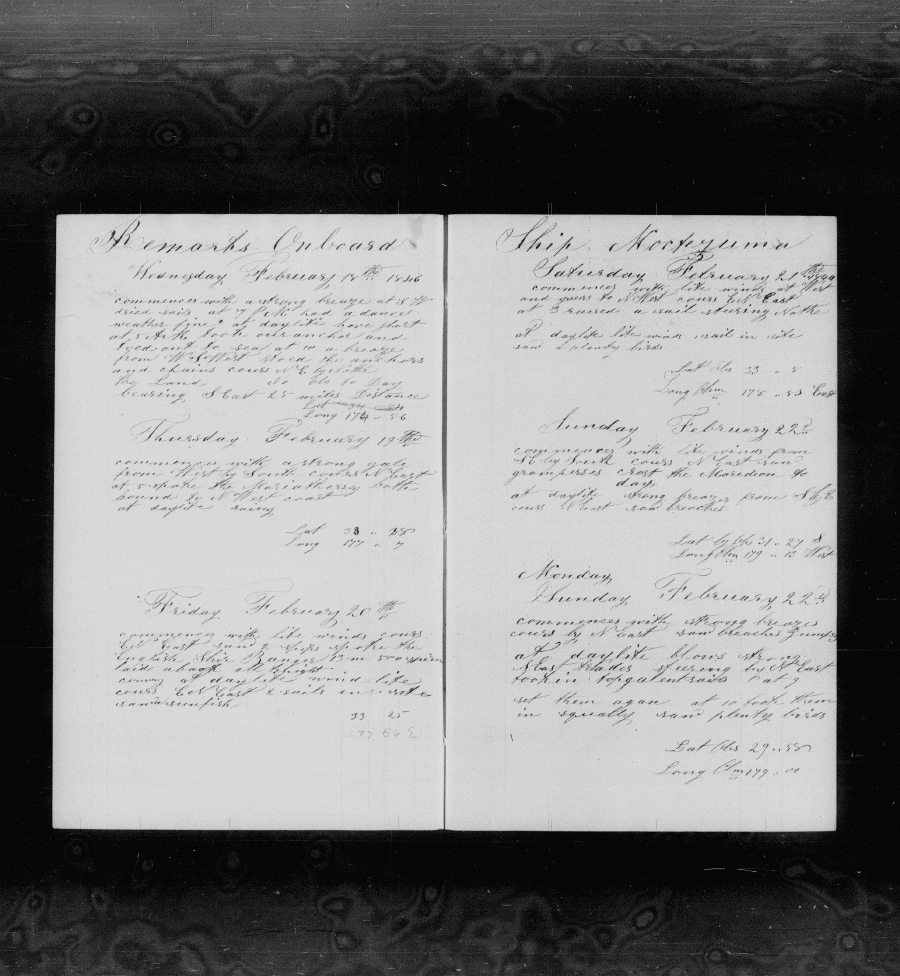 Remarks Onboard
Wednesday February 18th 1846
commences with a strong breaze at S W
dried sails at 7 PM had a dance
weather fine at daylite hove short
at 5 AM took our anchor and
stood out to sea at 10 a breaze
from W S West stoed the anchors
and chains cours N E by Nothe
the Land No obs to Day
bearing S East 25 miles Distance
Lat 34
Long 174 " 56
Thursday February 19th
commences with a strong gale
from West by South cours N East
at 5 spoke the Maria both
bound to N West coast
at daylite rainy
Lat 33 " 38
Long 177 " 7
Friday February 20th
commences with lite winds cours
E N East saw 2 ships spoke the
English Ship Ranger 13 m 500 sperm
laid aback all night
at daylite wind lite
cours E N East 2 sails in site
saw a sunfish
33 25
177 56 E
Ship Mocteyuma
Saturday February 21th
commences with lite winds at West
and by N West cours E N East
at 3 raised a sail stearing Nothe
at daylite lite wind sail in site
saw a plenty birds
Lat Obs 33 " 5
Long Chm 178 " 53 East
Sunday February 22d
commences with lite winds from
S E by South cours N East saw
grampusses crost the Maredeon to
day
at daylite strong breazes from S by E
cours N East saw breaches
Lat by Obs 31 " 27 S
Long Chm 179 " 13 West
Monday
Sunday February 22d
commences with strong breazes
cours by N East saw breaches
at daylite blows strong
N East trades stearing by N East
took in topgalent sails at 9
set them agan at 10 took them
in squally saw plenty birds
Lat Obs 29 " 58
Long Chm 179 " 00